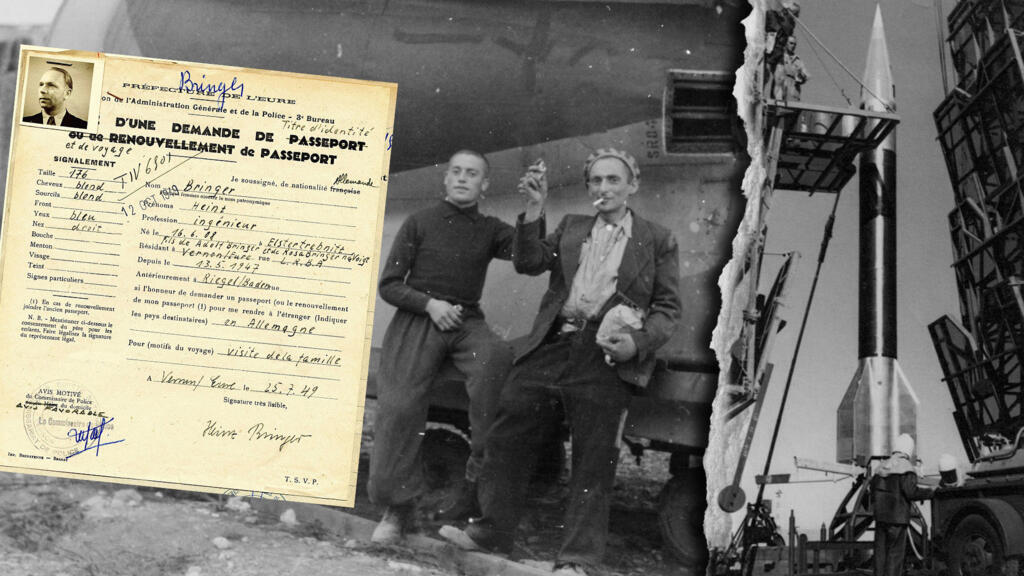 Bringer
PRÉFECTURE DE L'EURE
on de l'Administration Générale et de la Police - 3e Bureau
Titre d'identité
D'UNE DEMANDE DE PASSEPORT
ou de RENOUVELLEMENT de PASSEPORT
et de voyage
SIGNALEMENT
Taille 176
Cheveux blond
Sourcils blond
Front
Yeux bleu
Nez droit
Bouche
Menton
Visage
Teint
Signes particuliers
12 1949
Je soussigné, de nationalité française
Allemande
Nom Bringer
noms Heinz
Profession ingénieur
Né le 16.6. Elstertrebnitz
fils de Adolf Bringer et de Rosa Bringer
Résidant à Vernon/Eure rue L.R.B.A.
Depuis le 13.5.1947
Antérieurement à Riegel/Baden
ai l'honneur de demander un passeport (ou le renouvellement
de mon passeport (1) pour me rendre à l'étranger (Indiquer
les pays destinataires) en Allemagne
Pour (motifs du voyage) visite de la famille
A Vernon/Eure le 25.7.49
Signature très lisible,
Heinz Bringer
(1) En cas de renouvellement
joindre l'ancien passeport.
N. B. - Mentionner ci-dessous le
consentement du père pour les
enfants. Faire légaliser la signature
du représentant légal.
AVIS MOTIVÉ
du Commissaire de Police
du domicile
AVIS FAVORABLE
Le Commissaire
T. S. V. P.